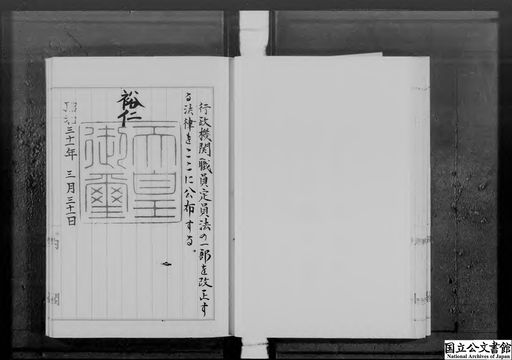 行政機関職員定員法の一部を改正す
る法律をここに公布する。
裕仁
天皇
御璽
昭和三十一年 三月三十一日
内閣
国立公文書館
National Archives of Japan